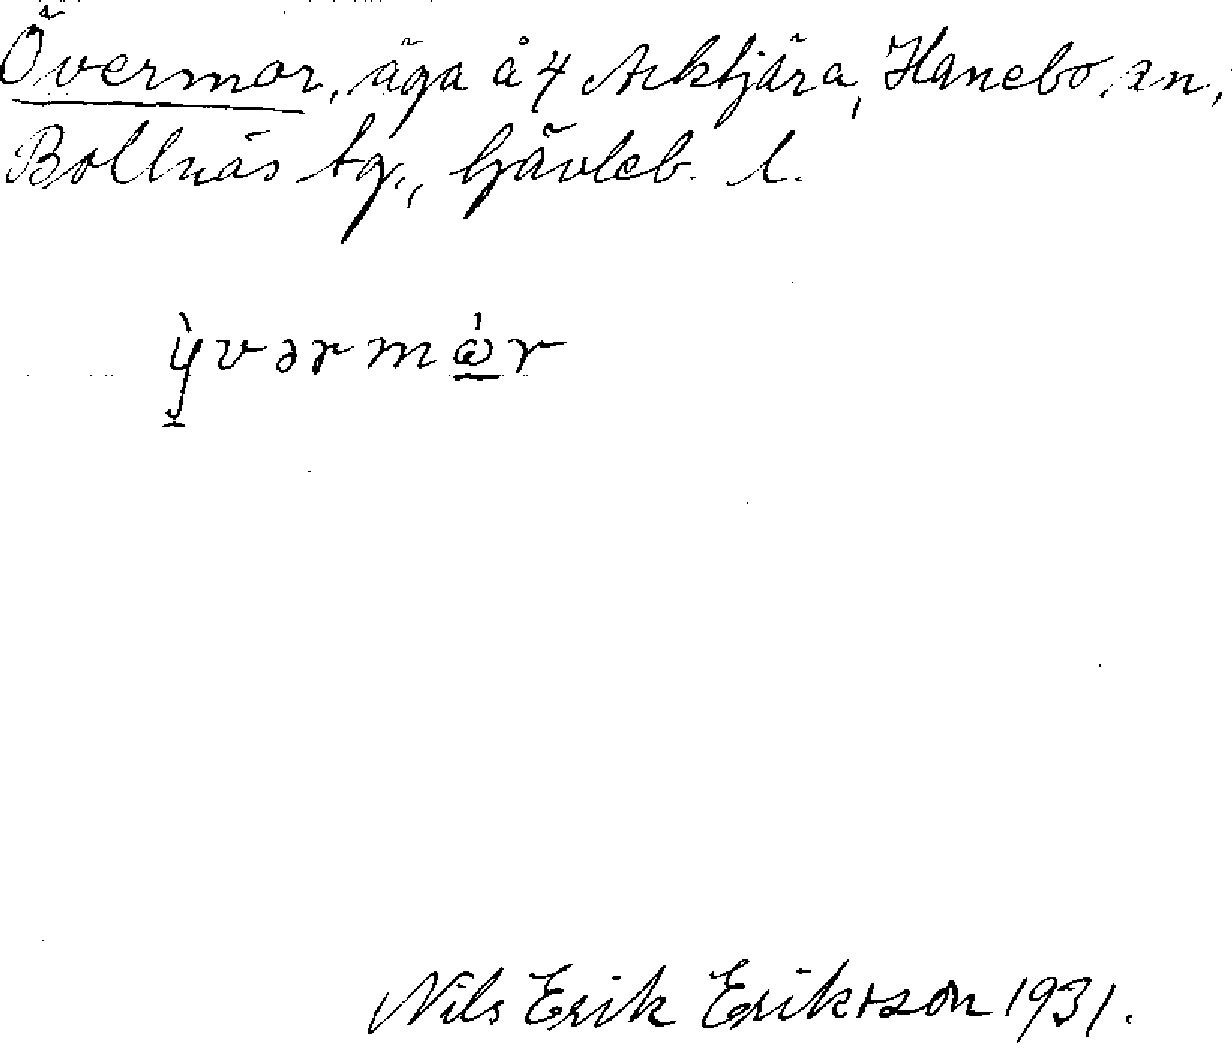 Övermor, äga å 4 Arktjära, Hanebo sn,
Bollnäs tg., Gävleb. l.
ỳvərmɷ́r
Nils Erik Eriksson 1931.